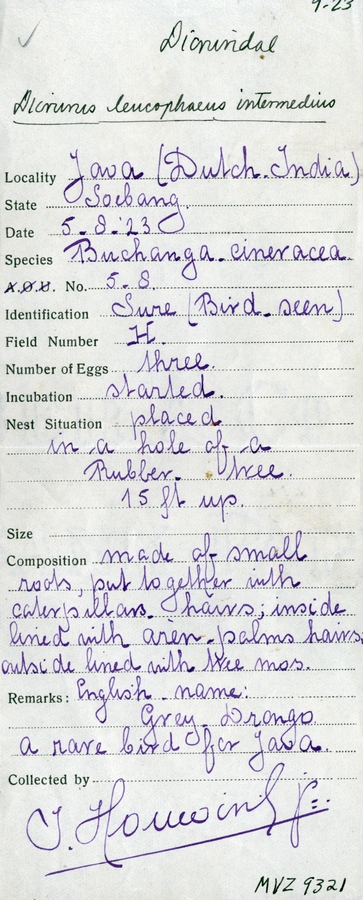 9-23
Dicruridae
Dicrurus leucophaeus intermedius
Locality Java (Dutch. India)
State Soebang.
Date 5-8-'23
Species Buchanga. cineracea.
A.O.U. No. 5-8.
Identification Sure (Bird. seen)
Field Number H.
Number of Eggs three.
Incubation started.
Nest Situation placed
in a hole of a
Rubber. tree.
15 ft up.
Size
Composition made of small
roots, put together with
caterpillars hairs; inside
lined with aren-palms hairs;
outside lined with tree mos.
Remarks: English name:
Grey. Drongo
a rare bird for Java.
Collected by
MVZ 9321